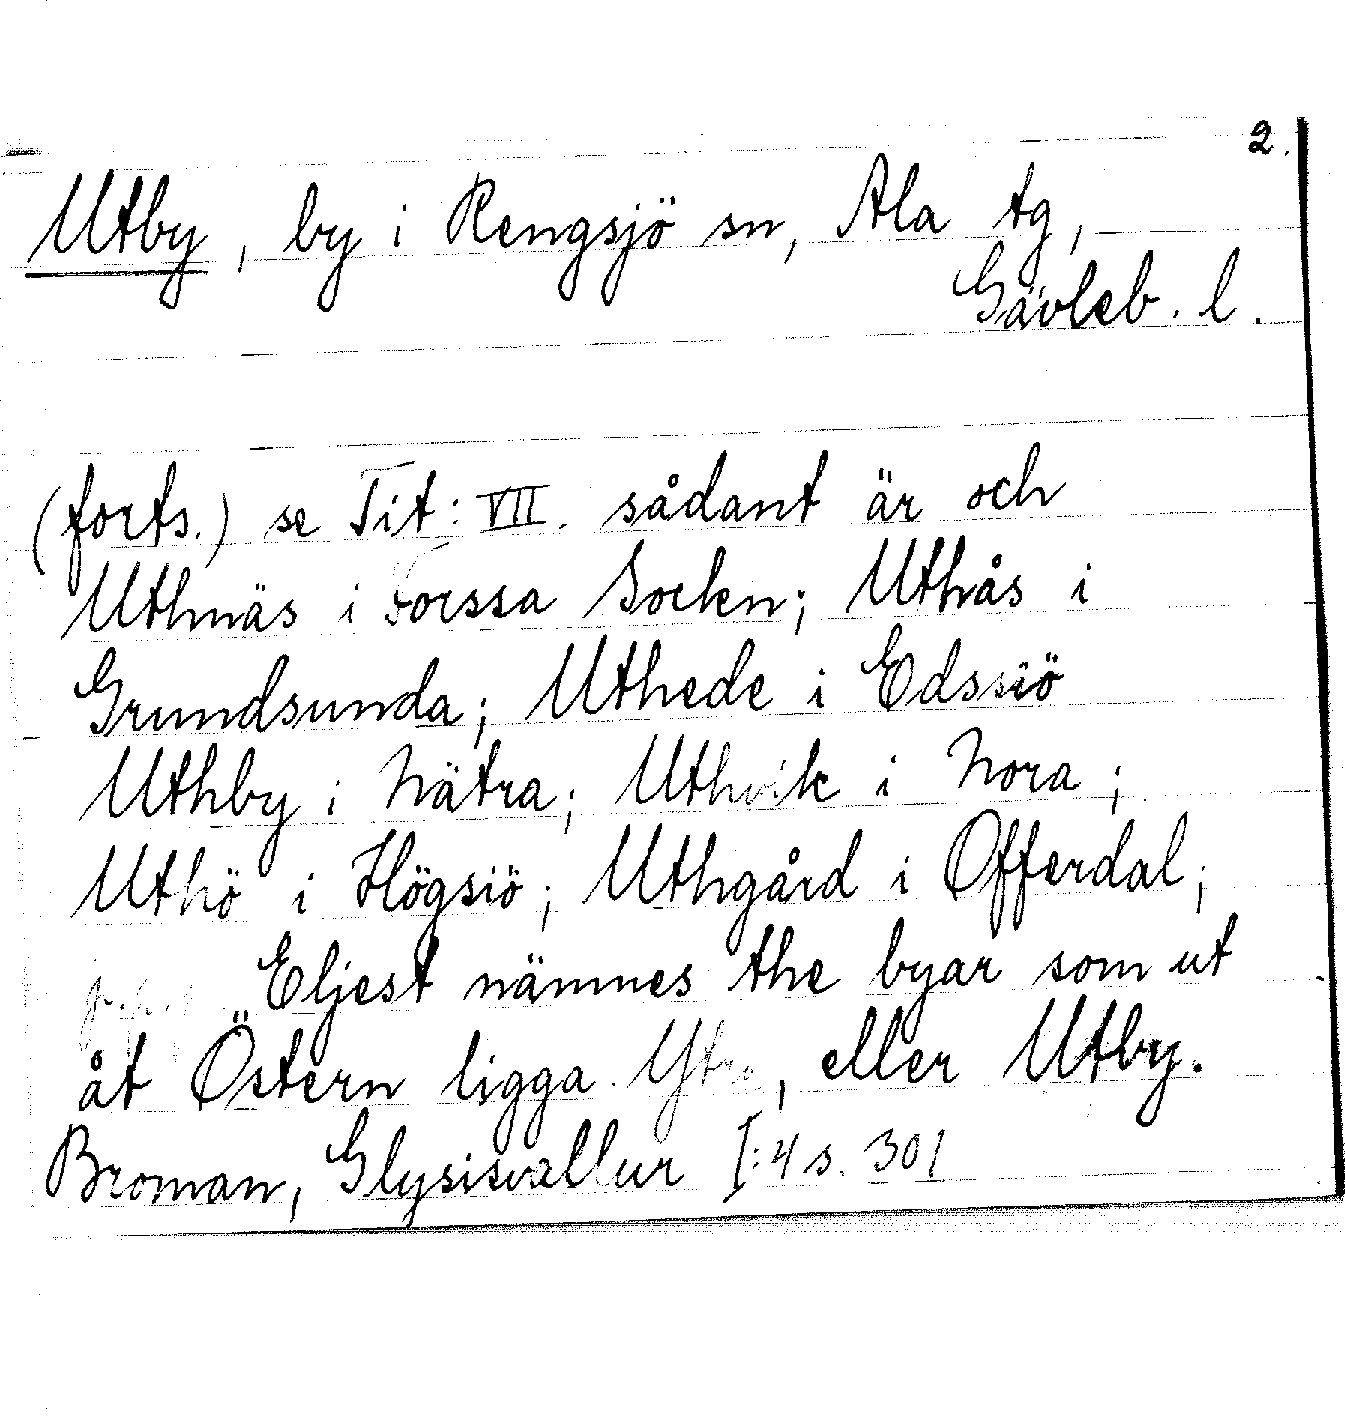 2.
Utby, by i Rengsjö sn, Ala tg,
Gävleb. l.
(forts.) se Tit: VII. sådant är och
Uthnäs i Forssa Socken; Uthås i
Grundsunda; Uthede i Edssiö
Uthby i Nätra; Uthvik i Nora;
Uthö i Högsiö; Uthgård i Offerdal;
Eljest nämnes the byar som ut
åt Östern ligga Ytre, eller Utby.
Broman, Glysisvallur I:4 s. 301